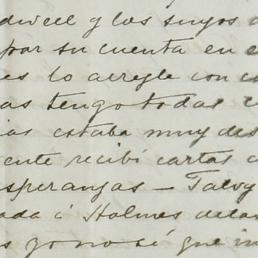 dwell y los suyos
por su cuenta en
es lo arregle con
as tengo todas
ias estaba muy des
ente recibí cartas
speranzas — Talvy
ada á Holmes
s yo no sé que in